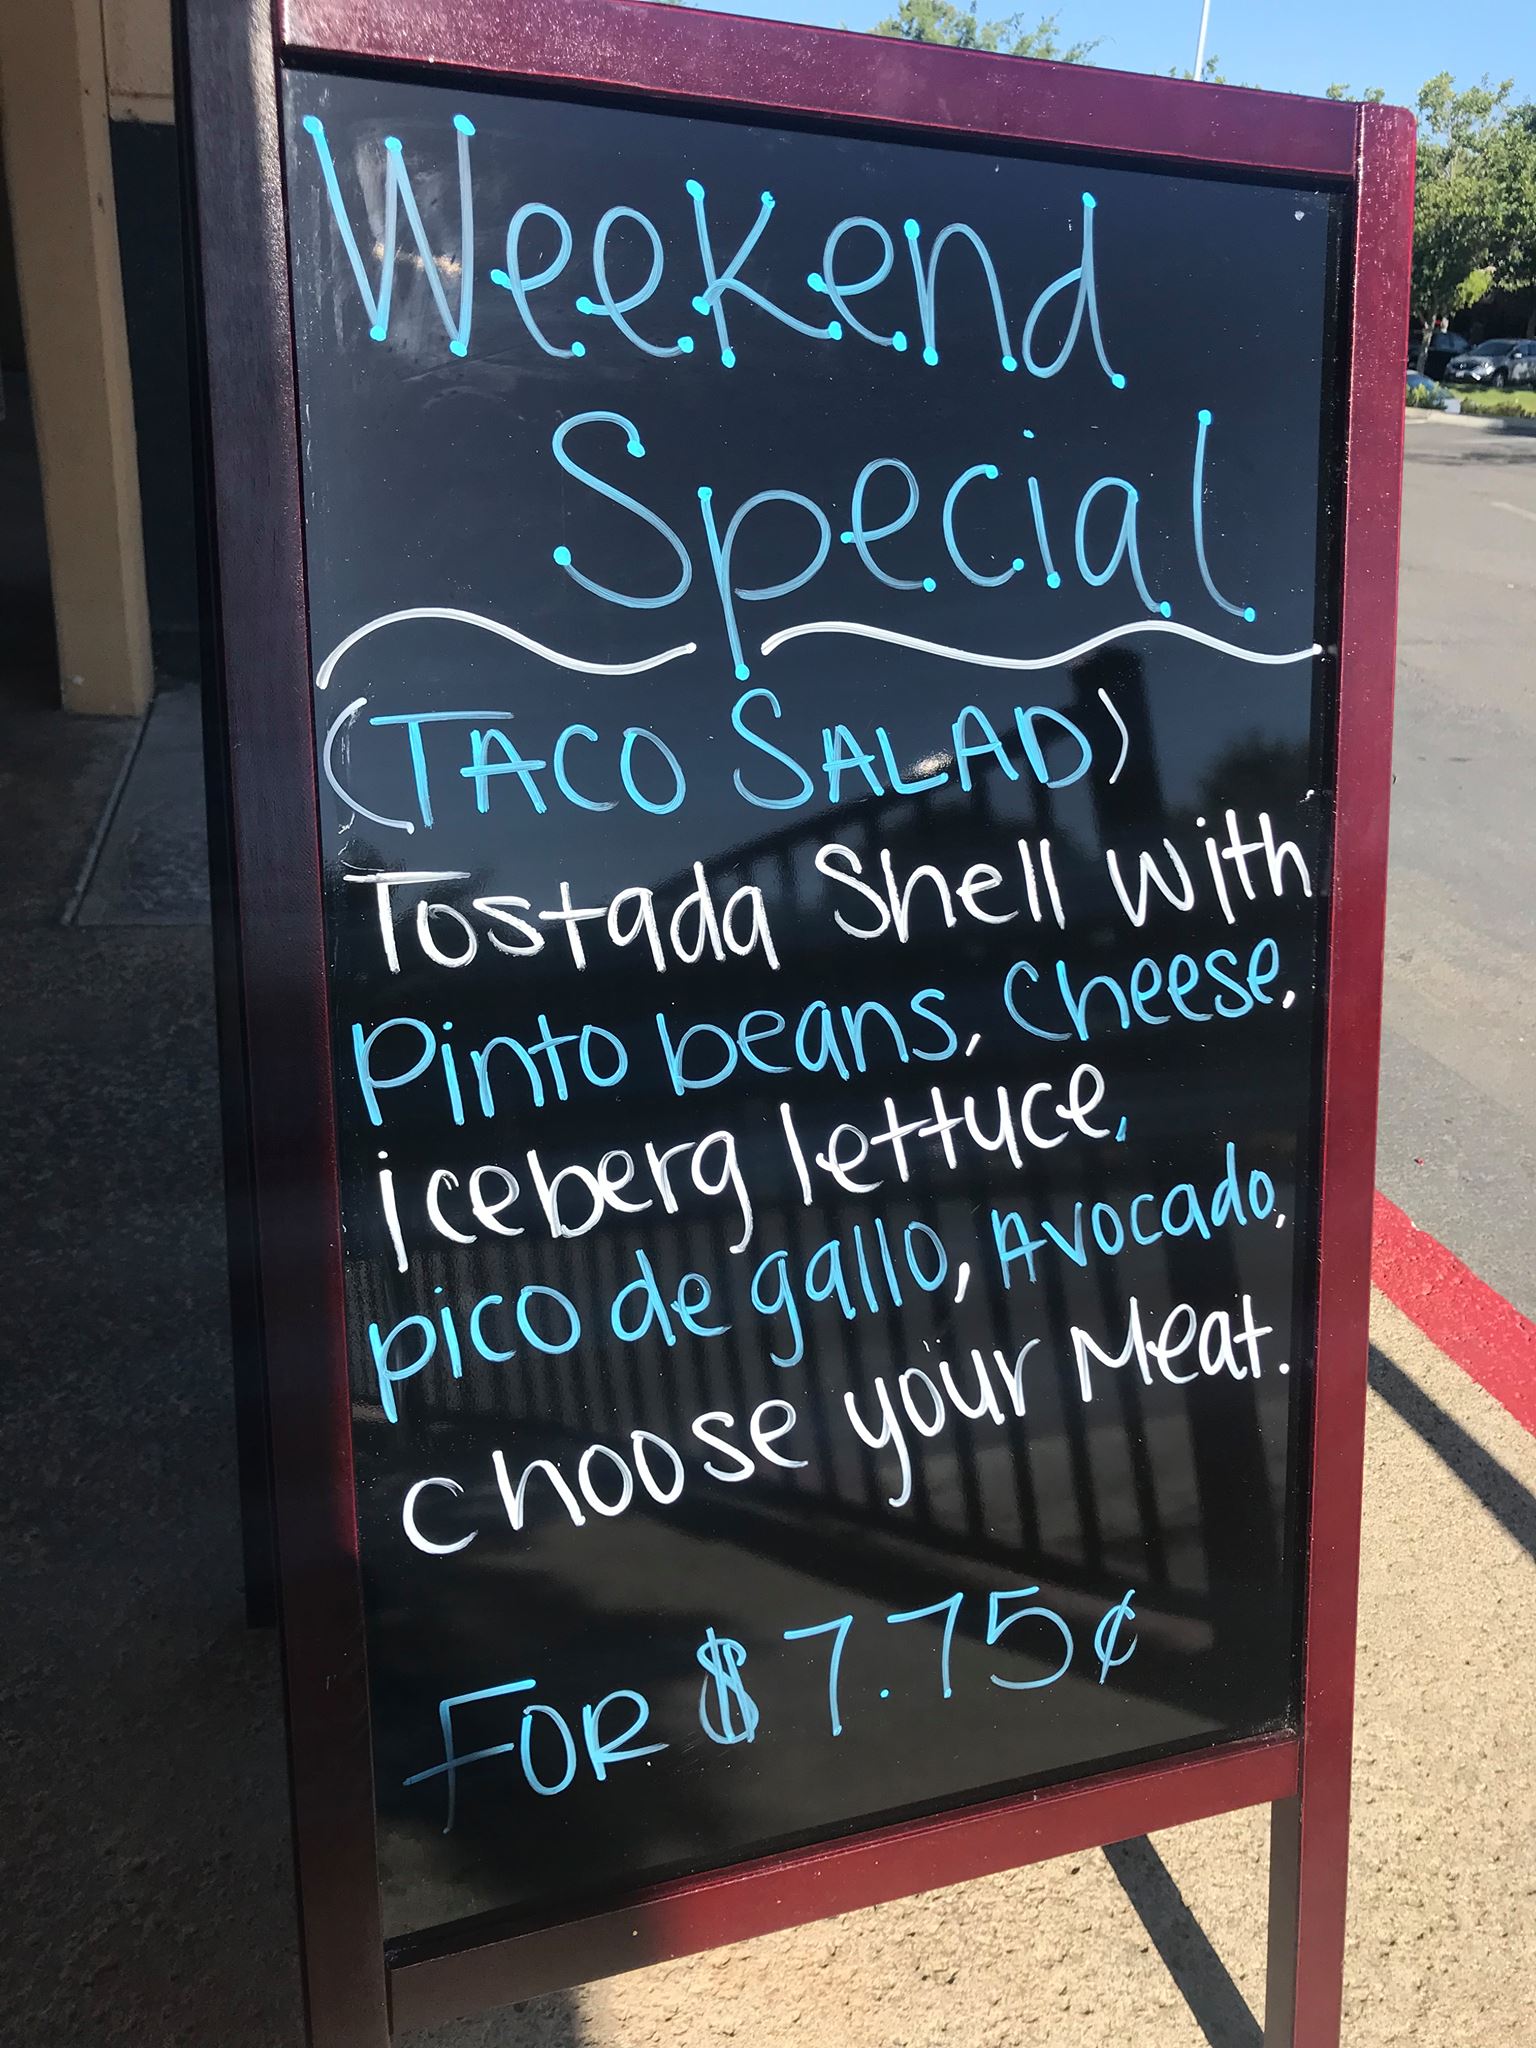 Weekend
Special
(TACO SALAD)
Tostada Shell with
Pinto beans, Cheese,
iceberg lettuce,
pico de gallo, Avocado,
choose your Meat.
FOR $7.75¢